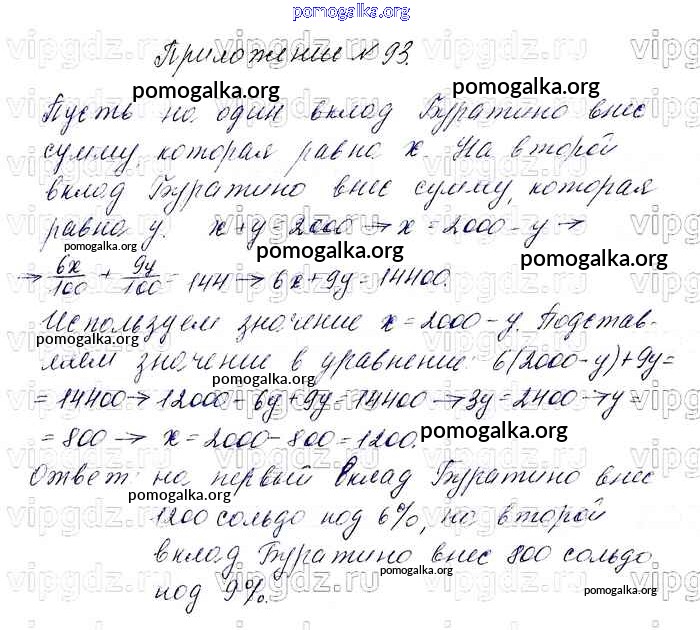 pomogalka.org
Приложение № 93.
pomogalka.org pomogalka.org
Пусть на один вклад Буратино внес
сумму, которая равна x. На второй
вклад Буратино внес сумму, которая
равна y. x+y=2000→x=2000-y→
pomogalka.org pomogalka.org pomogalka.org
→6x/100+9y/100=144→6x+9y=14400.
Используем значение x=2000-y. Подстав-
pomogalka.org
ляем значение в уравнение: 6(2000-y)+9y=
pomogalka.org
=14400→12000-6y+9y=14400→3y=2400→y=
=800→x=2000-800=1200.
pomogalka.org
Ответ: на первый вклад Буратино внес
pomogalka.org
1200 сольдо под 6%, на второй
вклад Буратино внес 800 сольдо
pomogalka.org
под 9%.
pomogalka.org
vipgdz.ru